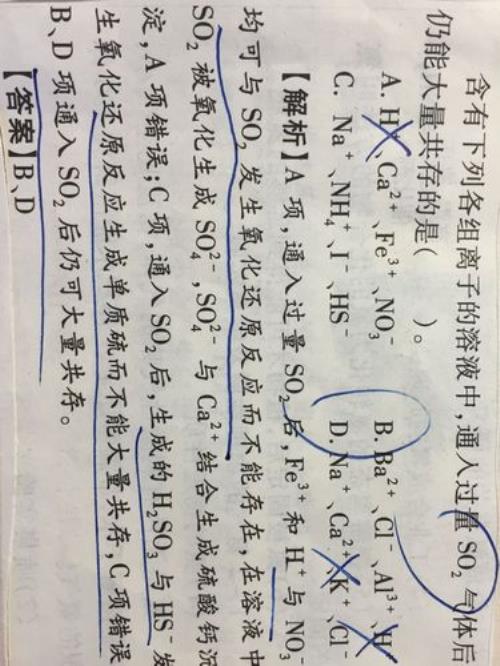 含有下列各组离子的溶液中,通入过量 SO₂ 气体后
仍能大量共存的是(　　)。
A. H⁺、Ca²⁺、Fe³⁺、NO₃⁻　　B. Ba²⁺、Cl⁻、Al³⁺、H⁺
C. Na⁺、NH₄⁺、I⁻、HS⁻　　D. Na⁺、Ca²⁺、K⁺、Cl⁻
【解析】A 项,通入过量 SO₂ 后,Fe³⁺ 和 H⁺ 与 NO₃⁻
均可与 SO₂ 发生氧化还原反应而不能存在,在溶液中
SO₂ 被氧化生成 SO₄²⁻,SO₄²⁻ 与 Ca²⁺ 结合生成硫酸钙沉
淀,A 项错误;C 项,通入 SO₂ 后,生成的 H₂SO₃ 与 HS⁻ 发
生氧化还原反应生成单质硫而不能大量共存,C 项错误
B、D 项通入 SO₂ 后仍可大量共存。
【答案】B、D